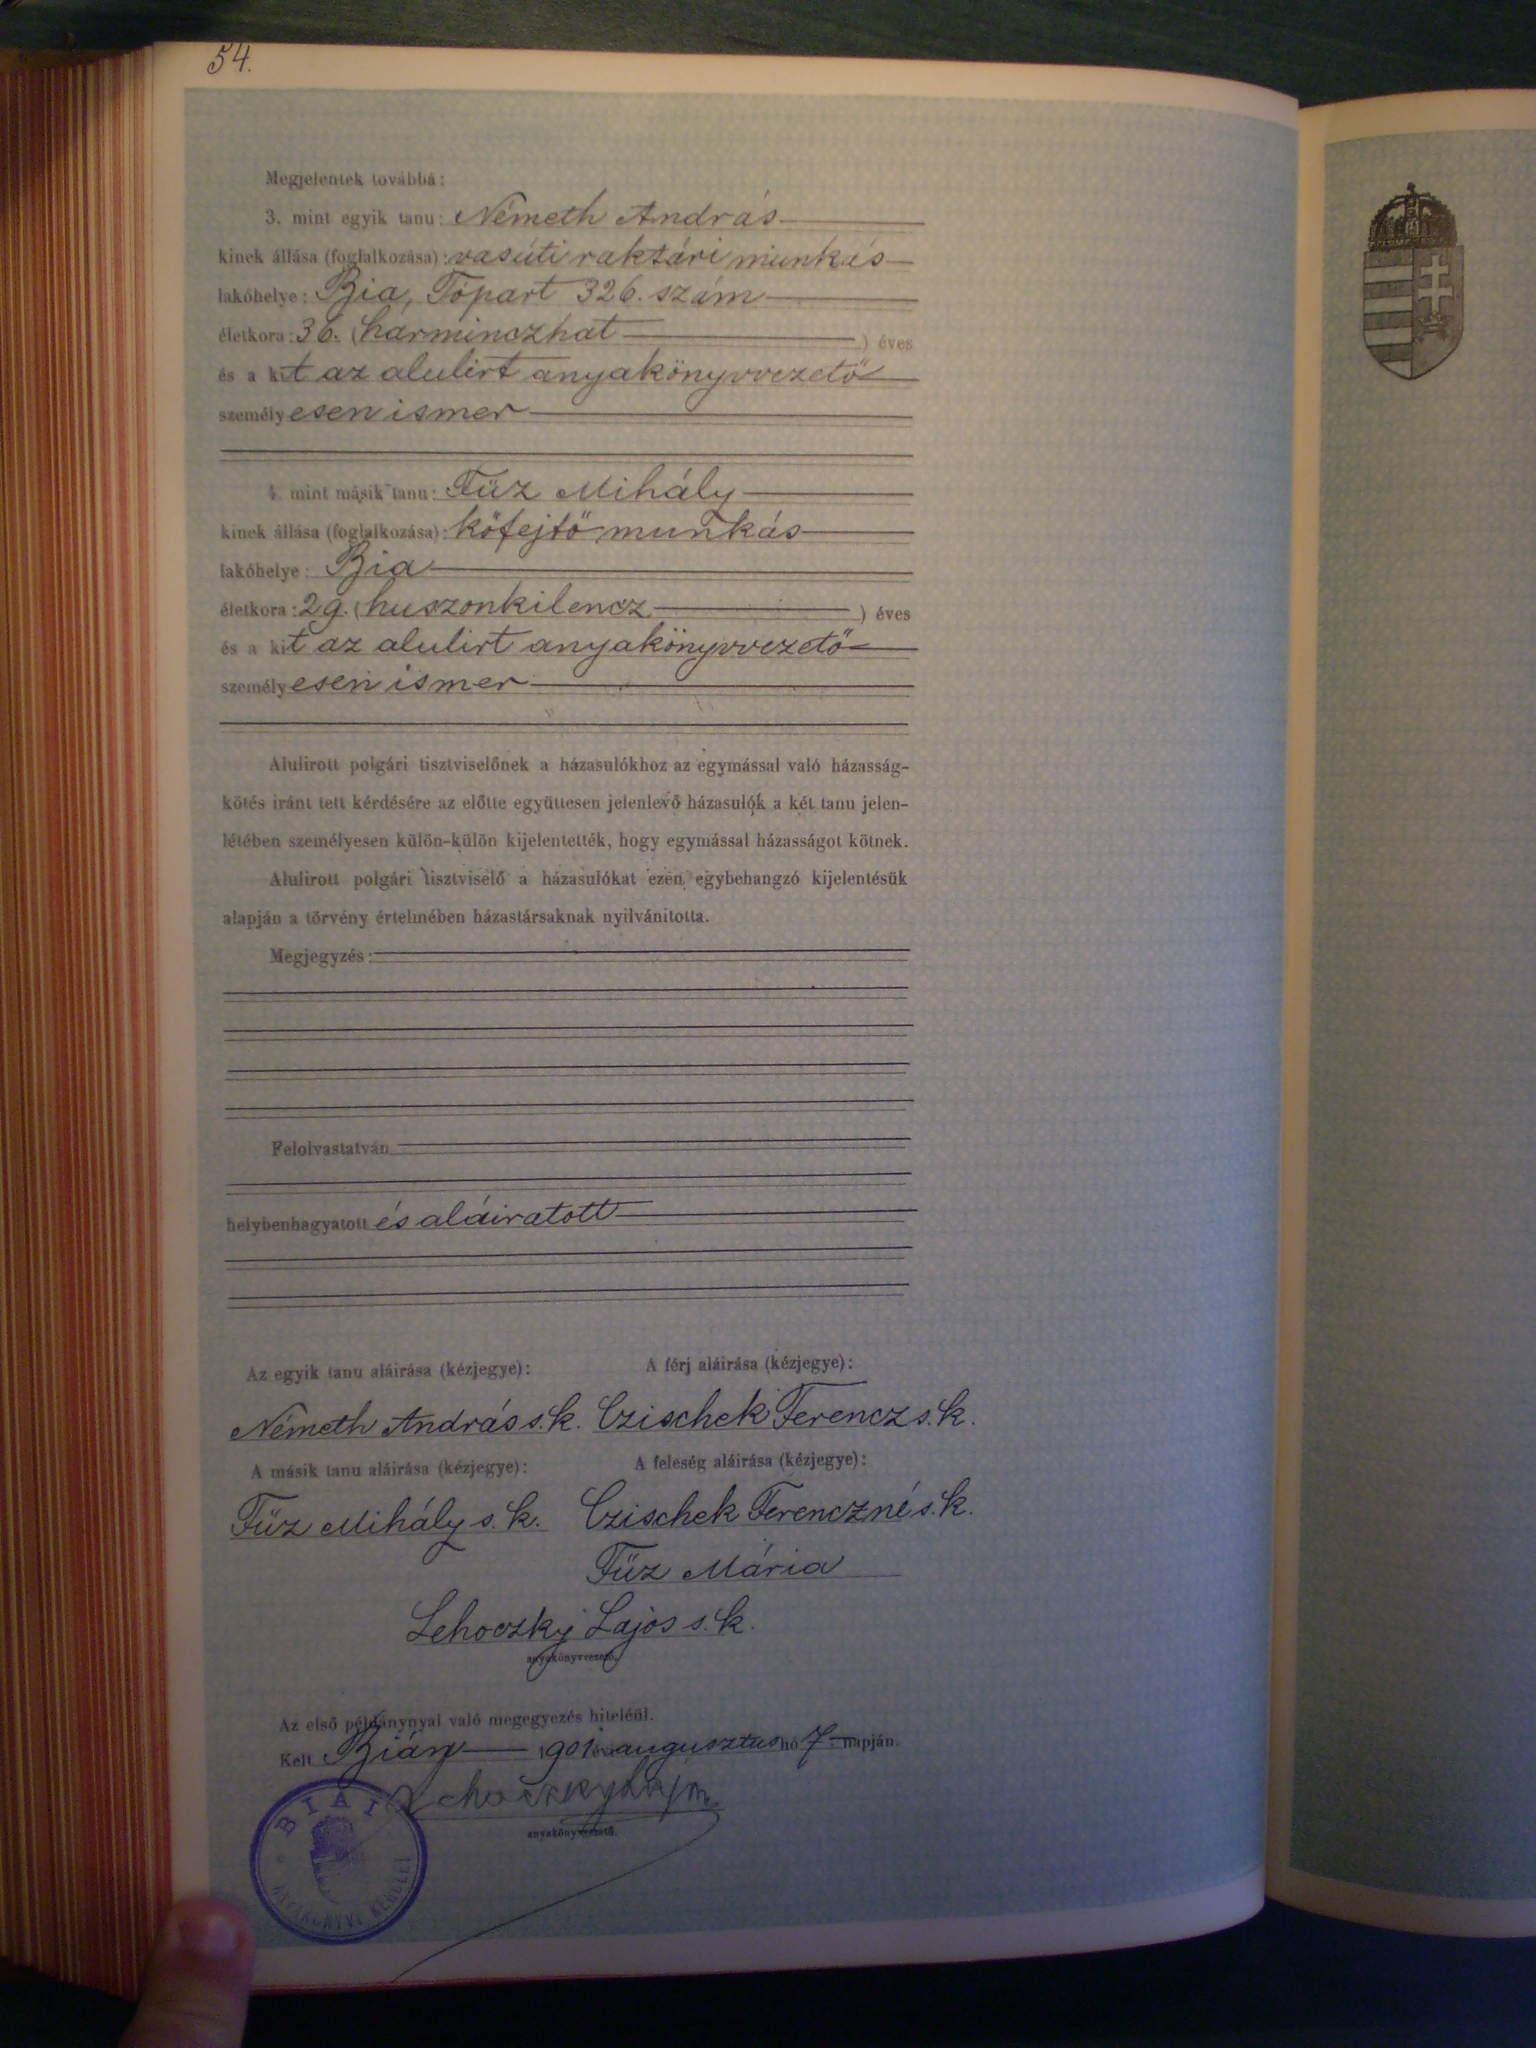 54.
Megjelentek továbbá:
3. mint egyik tanu: Németh András
kinek állása (foglalkozása): vasúti raktári munkás
lakóhelye: Bia, Tópart 326. szám
életkora: 36. (harminczhat) éves
és a kit az alulirt anyakönyvvezető
személyesen ismer
4. mint másik tanu: Füz Mihály
kinek állása (foglalkozása): kőfejtő munkás
lakóhelye: Bia
életkora: 29. (huszonkilencz) éves
és a kit az alulirt anyakönyvvezető
személyesen ismer
Alulirott polgári tisztviselőnek a házasulókhoz az egymással való házasság-
kötés iránt tett kérdésére az előtte együttesen jelenlevő házasulók a két tanu jelen-
létében személyesen külön-külön kijelentették, hogy egymással házasságot kötnek.
Alulirott polgári tisztviselő a házasulókat ezen egybehangzó kijelentésük
alapján a törvény értelmében házastársaknak nyilvánitotta.
Megjegyzés:
Felolvastatván
helybenhagyatott és aláiratott
Az egyik tanu aláirása (kézjegye): A férj aláirása (kézjegye):
Németh András s. k. Czischek Ferencz s. k.
A másik tanu aláirása (kézjegye): A feleség aláirása (kézjegye):
Füz Mihály s. k. Czischek Ferenczné s. k.
Füz Mária
Lehoczky Lajos s. k.
anyakönyvvezető.
Az első példánynyal való megegyezés hiteléül.
Kelt Bián 1901 évi augusztus hó 7. napján.
Lehoczky Lajos
anyakönyvvezető.
BIAI
ANYAKÖNYVI KERÜLET